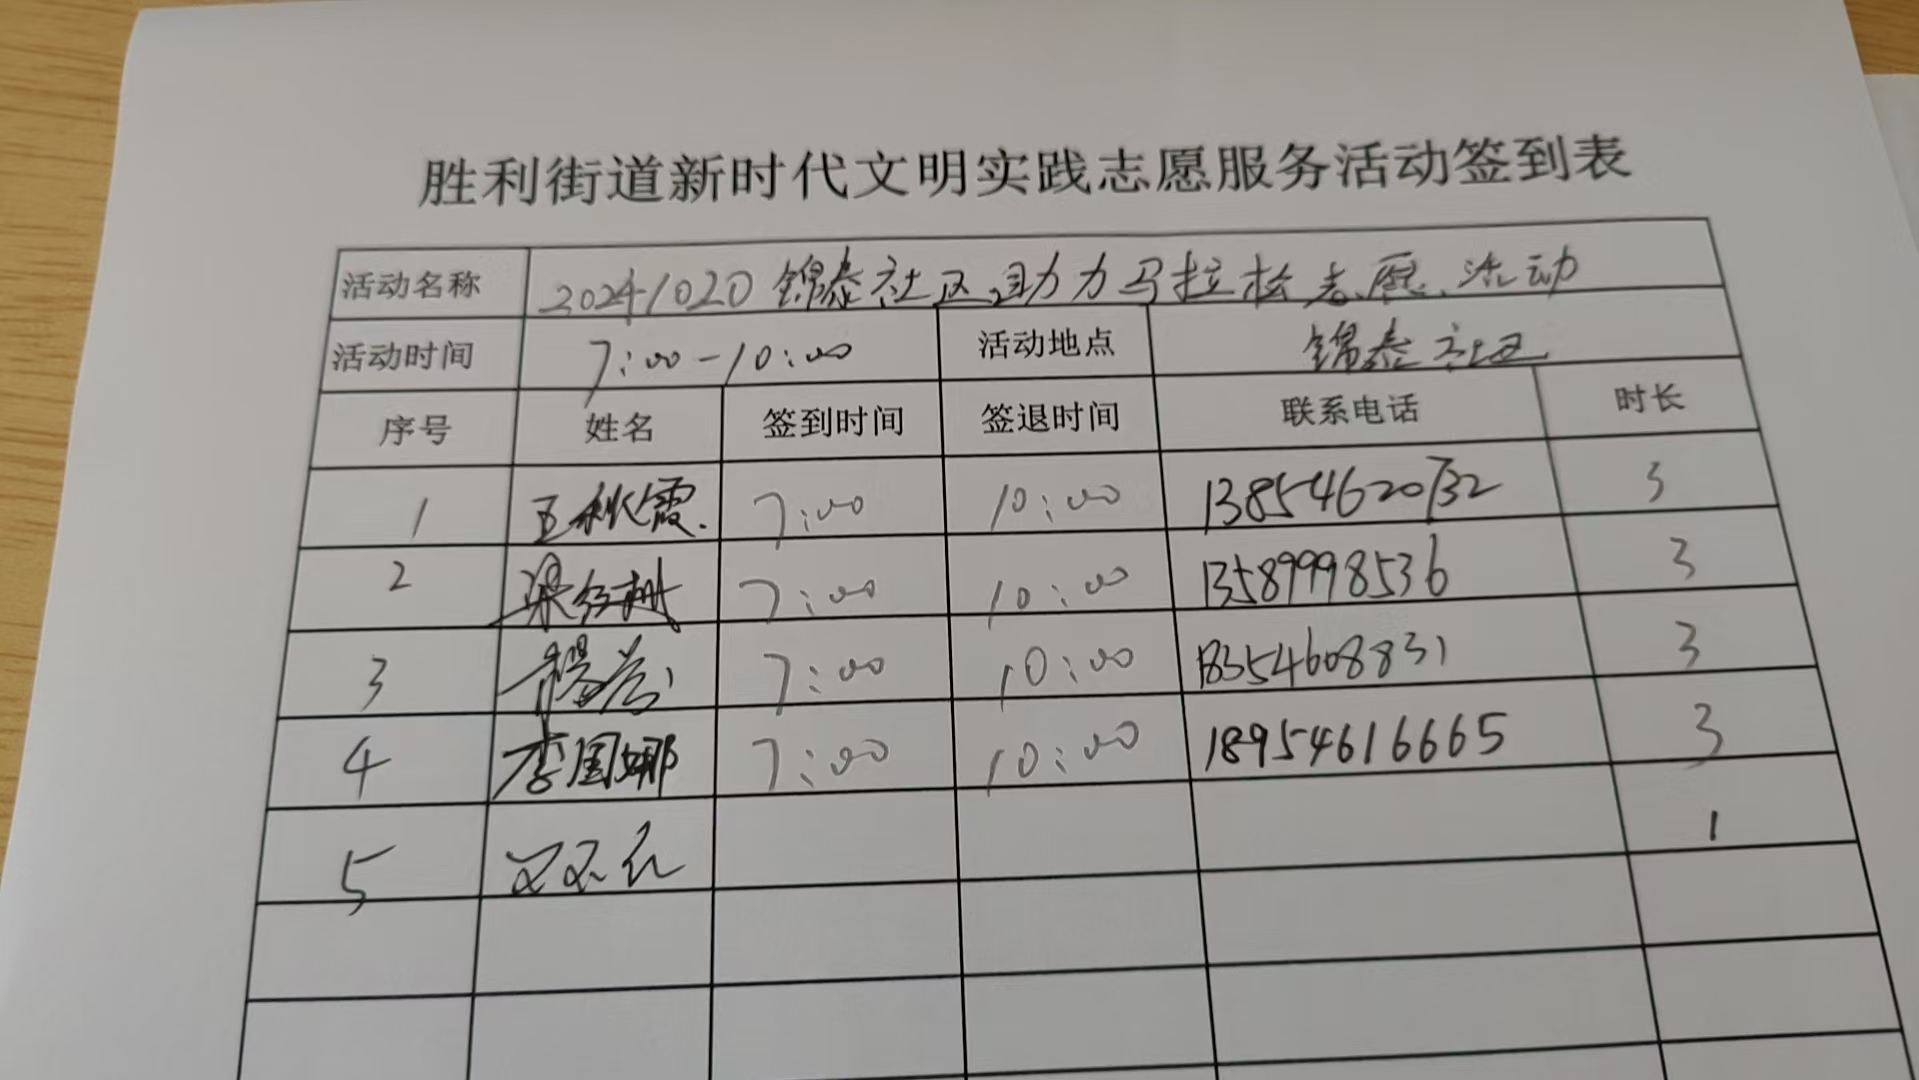 胜利街道新时代文明实践志愿服务活动签到表
活动名称 20241020 锦泰社区助力马拉松志愿活动
活动时间 7:00-10:00 活动地点 锦泰社区
序号 姓名 签到时间 签退时间 联系电话 时长
1 王秋霞 7:00 10:00 13854620732 3
2 梁红树 7:00 10:00 13589998536 3
3 杨芸 7:00 10:00 18354608831 3
4 李国娜 7:00 10:00 18954616665 3
5 1